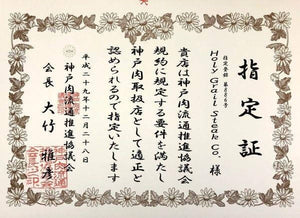 指定証
指定登録 第886号
Holy Grail Steak Co. 様
貴店は神戸肉流通推進協議会
規約に規定する要件を満たし
神戸肉取扱店として適正と
認められるので指定いたします
平成二十九年十二月二十八日
神戸肉流通推進協議会
会長 大竹 雅彦